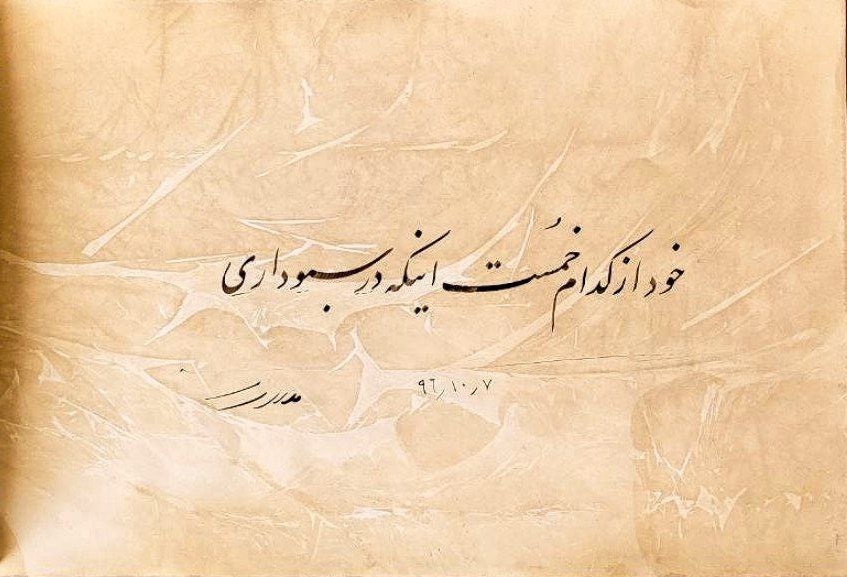 خود از کدام خُمست اینکه در سبو داری
۹۶٫۱۰٫۷
مدرس